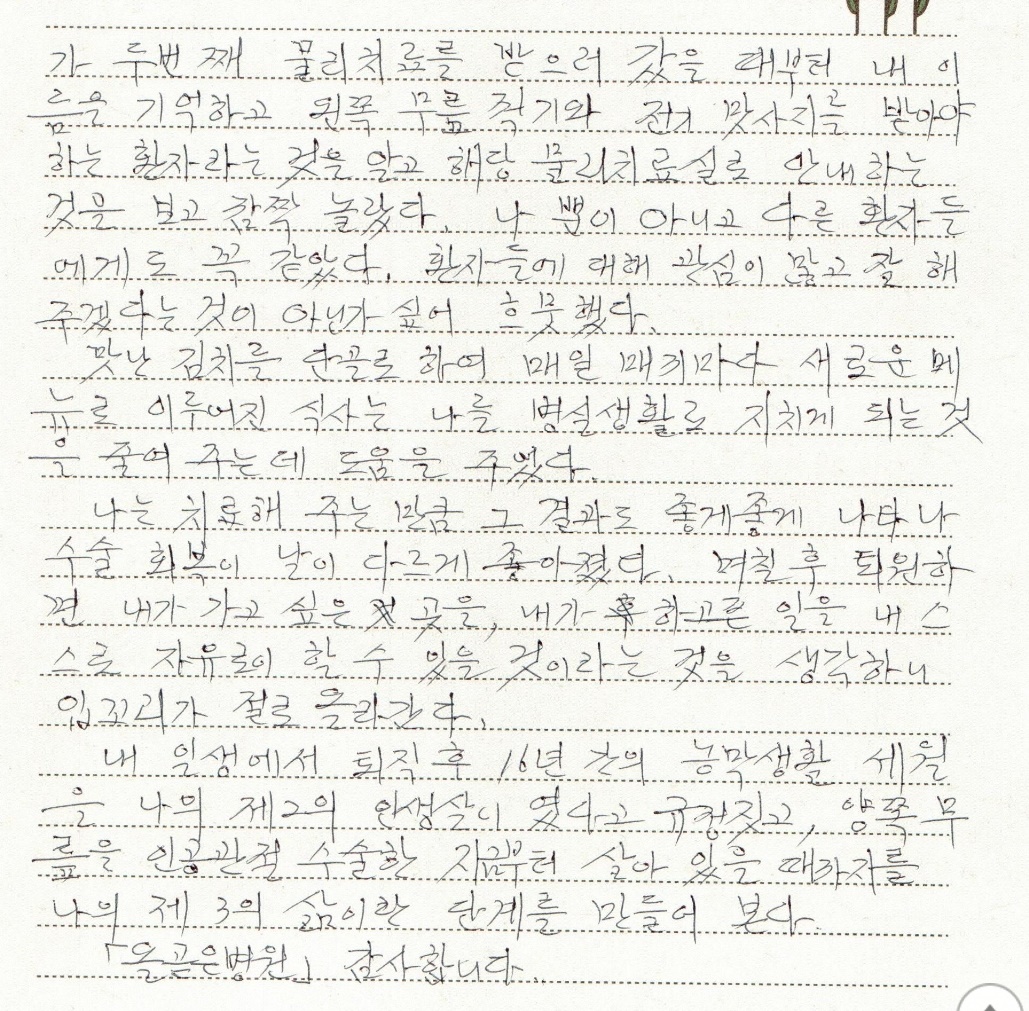 가 두번 째 물리치료를 받으러 갔을 때부터 내 이
름을 기억하고 왼쪽 무릎 찍기와 전기 맛사지를 받아야
하는 환자라는 것을 알고 해당 물리치료실로 안내하는
것을 보고 깜짝 놀랐다. 나 뿐이 아니고 다른 환자들
에게도 꼭 같았다. 환자들에 대해 관심이 많고 잘 해
주겠다는 것이 아닌가 싶어 흐뭇했다.
맛난 김치를 단골로 하여 매일 매끼마다 새로운 메
뉴로 이루어진 식사는 나를 병실생활로 지치게 되는 것
을 줄여 주는데 도움을 주었다.
나는 치료해 주는 만큼 그 결과도 좋게좋게 나타나
수술 회복이 날이 다르게 좋아졌다. 며칠 후 퇴원하
면 내가 가고 싶은 곳을, 내가 하고픈 일을 내 스
스로 자유로이 할 수 있을 것이라는 것을 생각하니
입꼬리가 절로 올라간다.
내 일생에서 퇴직 후 16년 간의 농막생활 세월
을 나의 제2의 인생살이 였다고 규정짓고, 양쪽 무
릎을 인공관절 수술한 지금부터 살아 있을 때까지를
나의 제 3의 삶이란 단계를 만들어 본다.
「올곧은병원」 감사합니다.